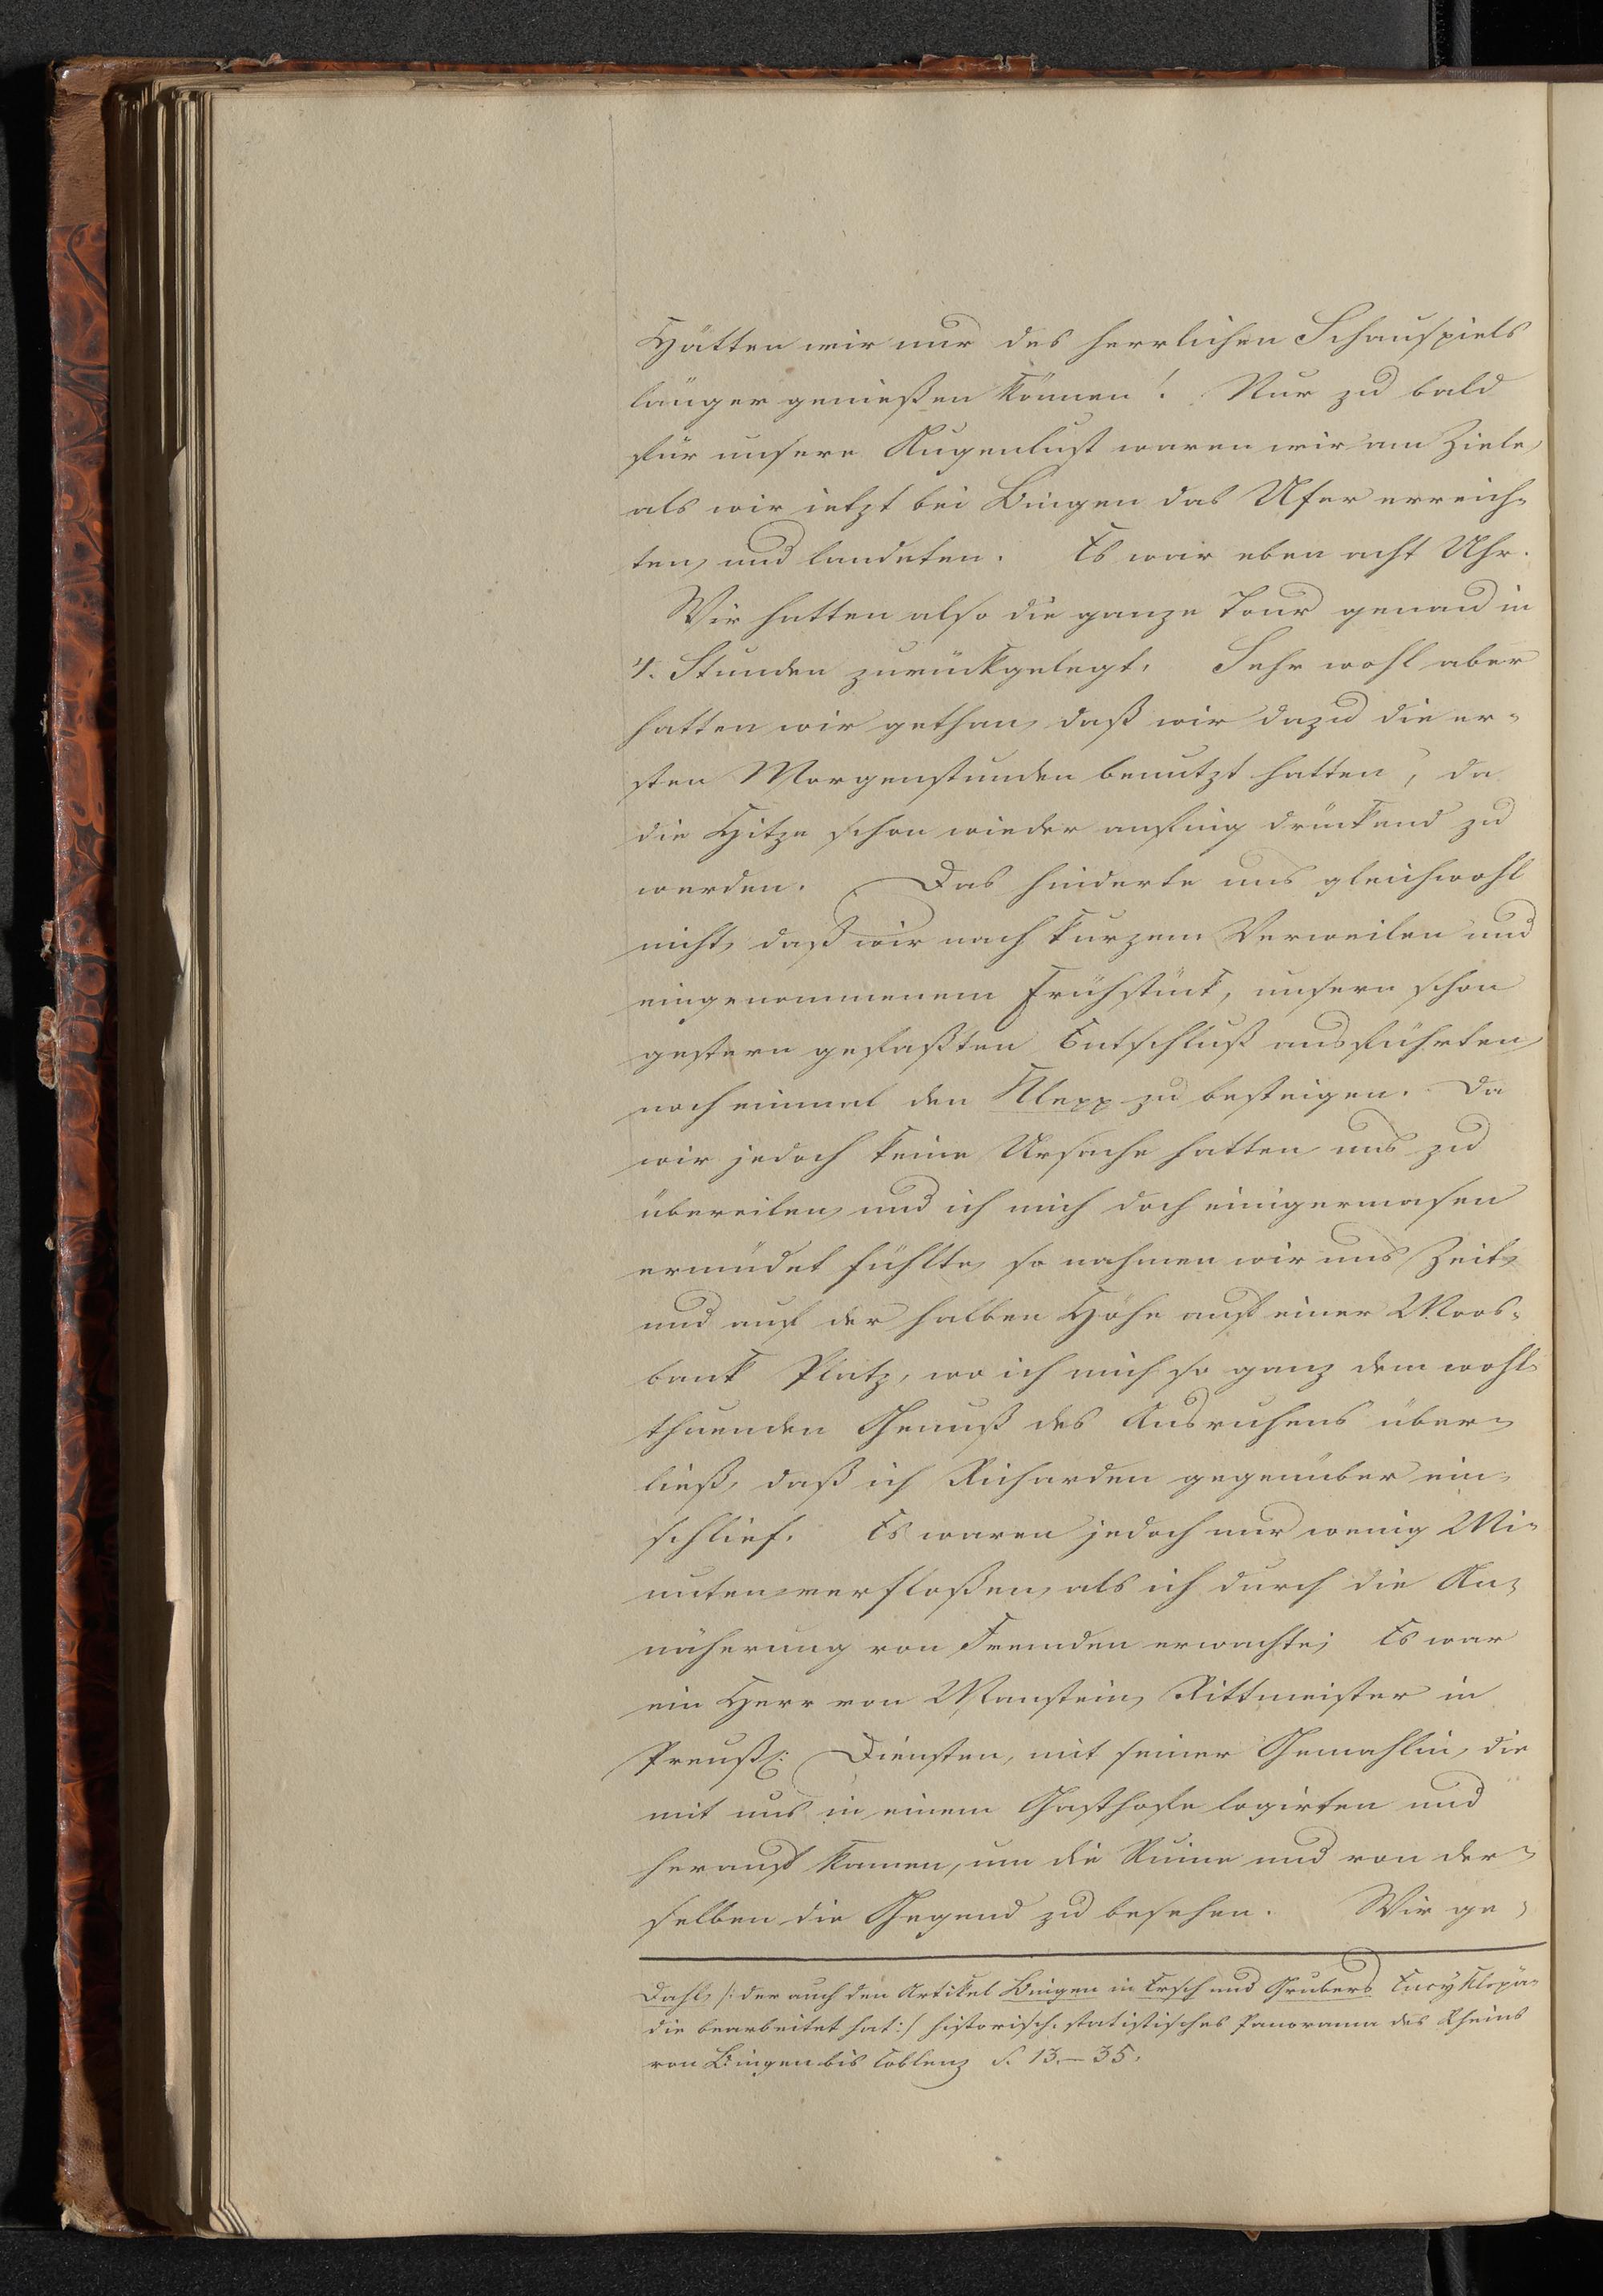 Hätten wir nur des herrlichen Schauspiels
länger genießen können! Nur zu bald
für unsere Augenlust waren wir am Ziele,
als wir ietzt bei Bingen das Ufer erreich-
ten, und landeten. Es war eben acht Uhr.
Wir hatten also die ganze Tour genau in
4. Stunden zurückgelegt. Sehr wohl aber
hatten wir gethan, daß wir dazu die er-
sten Morgenstunden benutzt hatten, da
die Hitze schon wieder anfing drückend zu
werden. Das hinderte uns gleichwohl
nicht, daß wir nach kurzem Verweilen und
eingenommenem Frühstück, unsern schon
gestern gefaßten Entschluß ausführten,
noch einmal den Klepp zu besteigen. Da
wir jedoch keine Ursache hatten uns zu
übereilen, und ich mich doch einigermasen
ermüdet fühlte, so nahmen wir uns Zeit,
und auf der halben Höhe auf einer Moos-
bank Platz, wo ich mich so ganz dem wohl-
thuenden Genuß des Ausruhens über-
ließ, daß ich Richarden gegenüber ein-
schlief. Es waren jedoch nur wenig Mi-
nuten verfloßen, als ich durch die An-
näherung von Fremden erwachte; Es war
ein Herr von Manstein, Rittmeister in
Preuß: Diensten, mit seiner Gemahlin, die
mit uns in einem Gasthofe logirten und
herauf kamen, um die Ruine und von der-
selben die Gegend zu besehen. Wir ge-
Dahl, /: der auch den Artikel Bingen in Ersch und Grubers Encyklopä-
die bearbeitet hat :/ historisch-statistisches Panorama des Rheins
von Bingen bis Coblenz S. 13.-35.